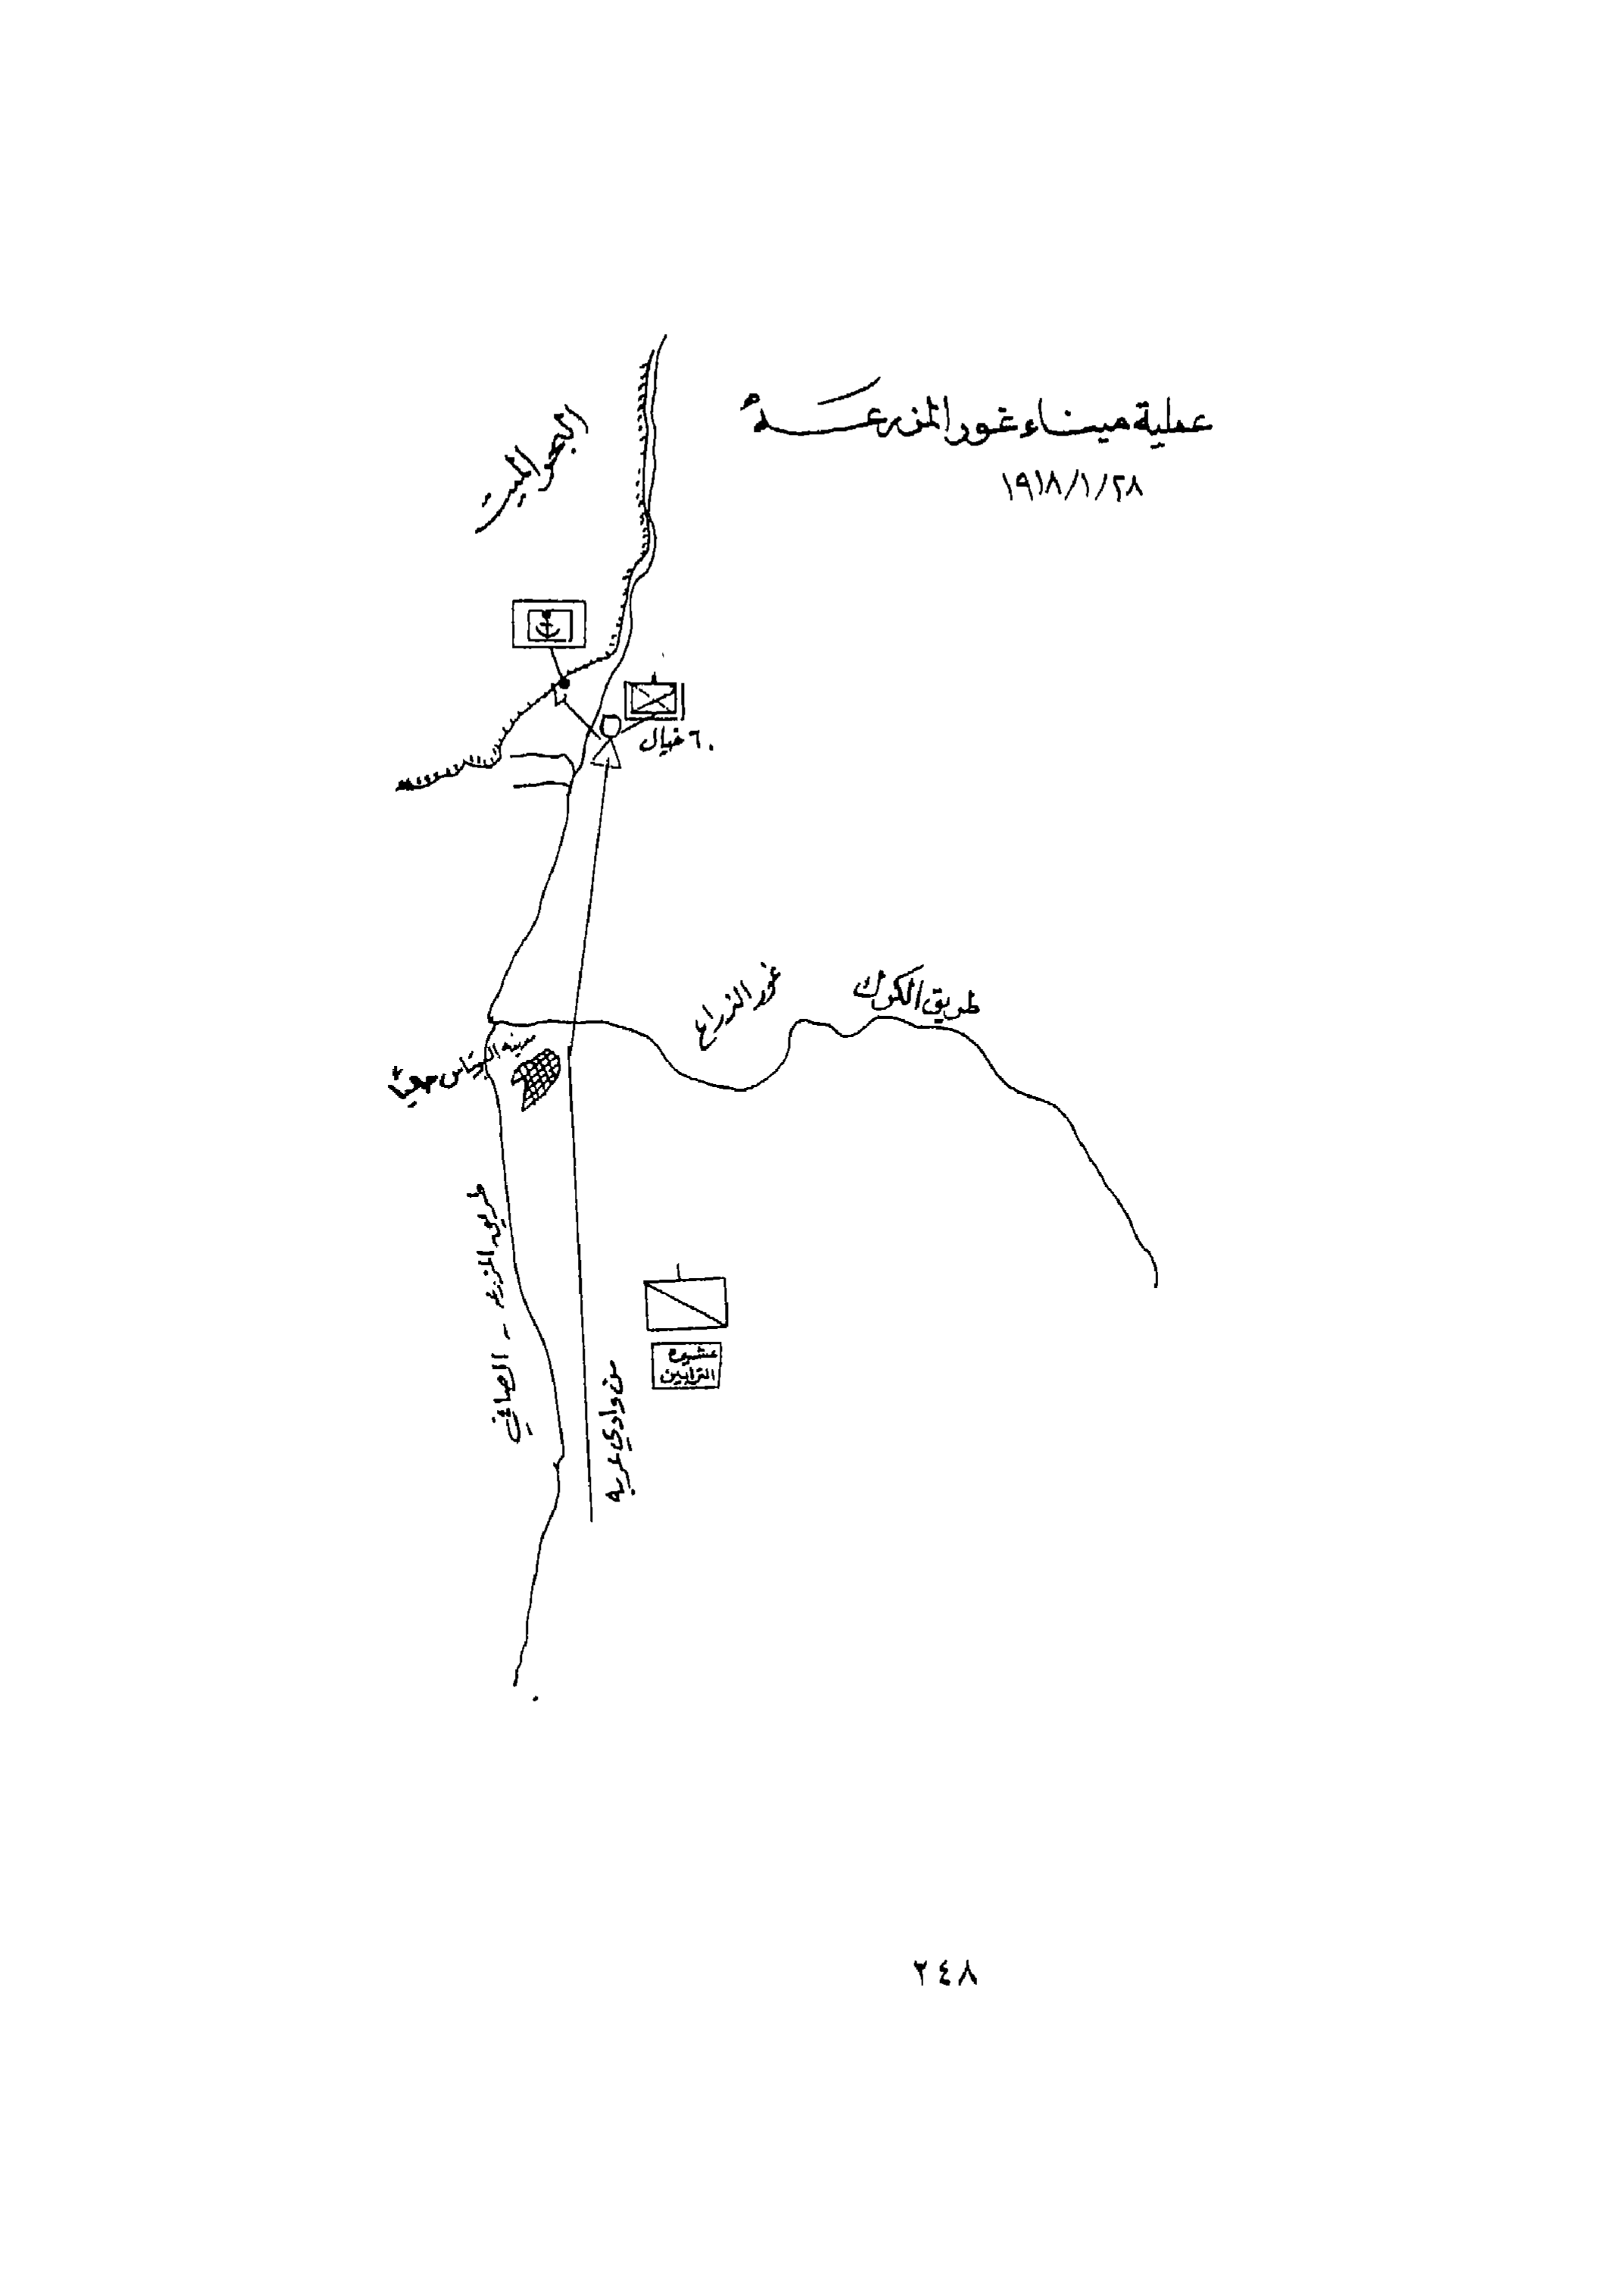 عملية ميناء غور المزرعة
١٩١٨/١/٢٨
البحر الميت
٦٠ خيال
طريق الكرك
غور الذراع
طريق المزرعة - الصافي
من وادي عربه
عشيرة
الترابين
٢٤٨